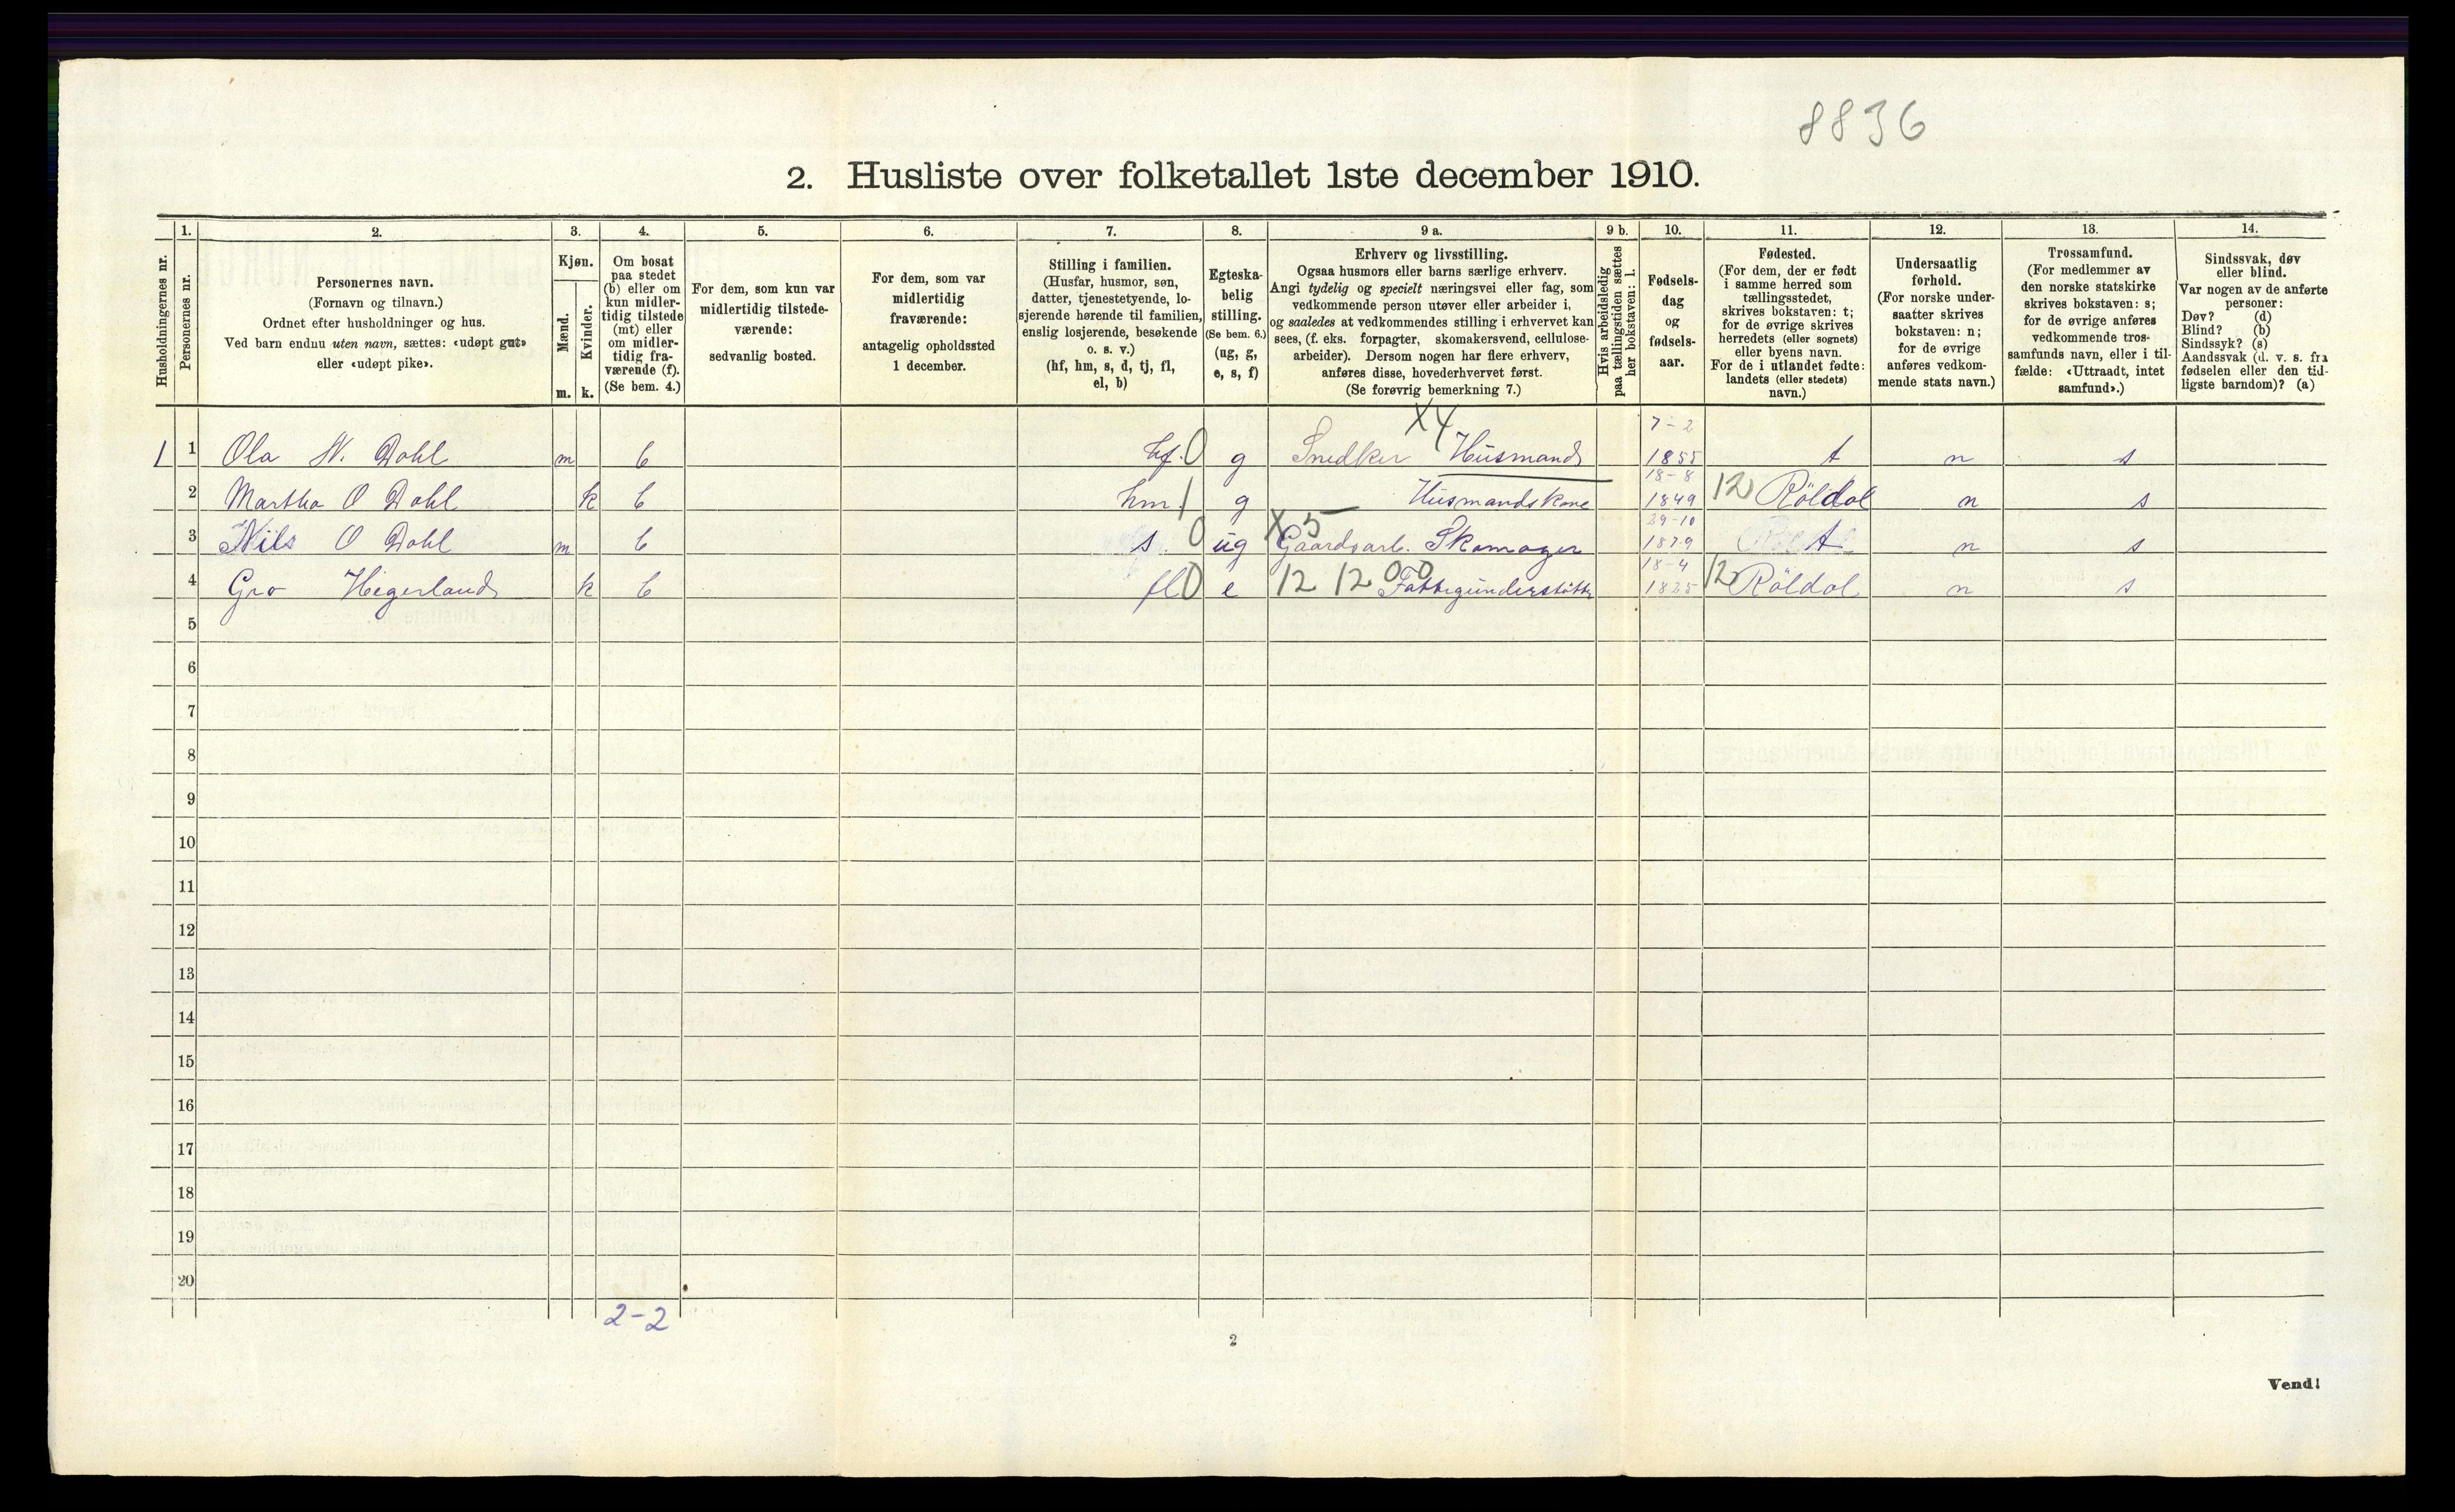 8836
2. Husliste over folketallet 1ste december 1910.
Husholdningernes nr.
1.
Personernes nr.
2.
Personernes navn.
(Fornavn og tilnavn.)
Ordnet efter husholdninger og hus.
Ved barn endnu uten navn, sættes: «udøpt gut»
eller «udøpt pike».
3.
Kjøn.
Mænd.
Kvinder.
m. k.
4.
Om bosat
paa stedet
(b) eller om
kun midler-
tidig tilstede
(mt) eller
om midler-
tidig fra-
værende (f).
(Se bem. 4.)
5.
For dem, som kun var
midlertidig tilstede-
værende:
sedvanlig bosted.
6.
For dem, som var
midlertidig
fraværende:
antagelig opholdssted
1 december.
7.
Stilling i familien.
(Husfar, husmor, søn,
datter, tjenestetyende, lo-
sjerende hørende til familien,
enslig losjerende, besøkende
o. s. v.)
(hf, hm, s, d, tj, fl,
el, b)
8.
Egteska-
belig
stilling.
(Se bem. 6.)
(ug, g,
e, s, f)
9 a.
Erhverv og livsstilling.
Ogsaa husmors eller barns særlige erhverv.
Angi tydelig og specielt næringsvei eller fag, som
vedkommende person utøver eller arbeider i,
og saaledes at vedkommendes stilling i erhvervet kan
sees, (f. eks. forpagter, skomakersvend, cellulose-
arbeider). Dersom nogen har flere erhverv,
anføres disse, hovederhvervet først.
(Se forøvrig bemerkning 7.)
9 b.
Hvis arbeidsledig
paa tællingstiden sættes
her bokstaven: l.
10.
Fødsels-
dag
og
fødsels-
aar.
11.
Fødested.
(For dem, der er født
i samme herred som
tællingsstedet,
skrives bokstaven: t;
for de øvrige skrives
herredets (eller sognets)
eller byens navn.
For de i utlandet fødte:
landets (eller stedets)
navn.)
12.
Undersaatlig
forhold.
(For norske under-
saatter skrives
bokstaven: n;
for de øvrige
anføres vedkom-
mende stats navn.)
13.
Trossamfund.
(For medlemmer av
den norske statskirke
skrives bokstaven: s;
for de øvrige anføres
vedkommende tros-
samfunds navn, eller i til-
fælde: «Uttraadt, intet
samfund».)
14.
Sindssvak, døv
eller blind.
Var nogen av de anførte
personer:
Døv? (d)
Blind? (b)
Sindssyk? (s)
Aandssvak (d. v. s. fra
fødselen eller den tid-
ligste barndom)? (a)
1 1 Ola N. Dahl m b hf. 0 g Snedker X4 Husmand 7-2 1855 t n s
2 Martha O Dahl k b hm 1 g Husmandskone 18-8 1849 12 Röldal n s
3 Nils O Dahl m b s. 0 ug X 5 Gaardsarb. Skomager 29-10 1879 t n s
4 Gro Hegerland k b fl 0 e 12 12 00 Fattigunderstøtte 18-4 1825 12 Röldal n s
5
6
7
8
9
10
11
12
13
14
15
16
17
18
19
20
2-2
2
Vend!